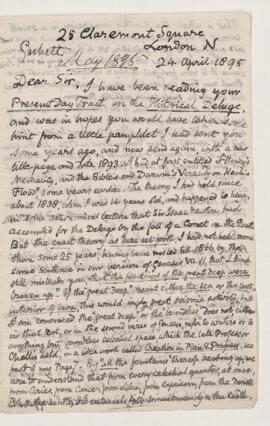 25 Claremont Square
London N
24 April 1895
May 1895
Dear Sir, I have been reading your
Present Day Tract on the Historical Deluge,
and was in hopes you would have taken some
hint from a little pamphlet I had sent you
some years ago, and now send again, with a new
title-page and late 1893. I had at first entitled it
and the Bible's and Darwin's Veracity on Noah's
Flood some years earlier. The theory I had held since
about 1838, when I was 14 years old, and happened to hear,
in some lecture that Sir Isaac Newton had
accounted for the Deluge by the fall of a Comet on the Earth.
But the exact theory as here set forth I had not held more
than some 25 years, having been misled till 1866 by that
same sentence in our version of Genesis VII-11, that I think
still misleads you, "the fountains of the great deep were
broken up". If "the great deep" meant either the sea or the
interior of Earth, this would imply great seismic activity, but
I am convinced the "great deep" or the does not either
in that text, or in the second verse of Genesis, refer to water or to
anything but boundless celestial space, which the late Professor
Challis held, in a little work called Creation in Plan & Progress, see
part of my page. By "all the fountains" thereof breaking up we
are to understand that from every celestial quarter, at once,
from Aries, from Cancer, from Libra, from Capricorn, from the North